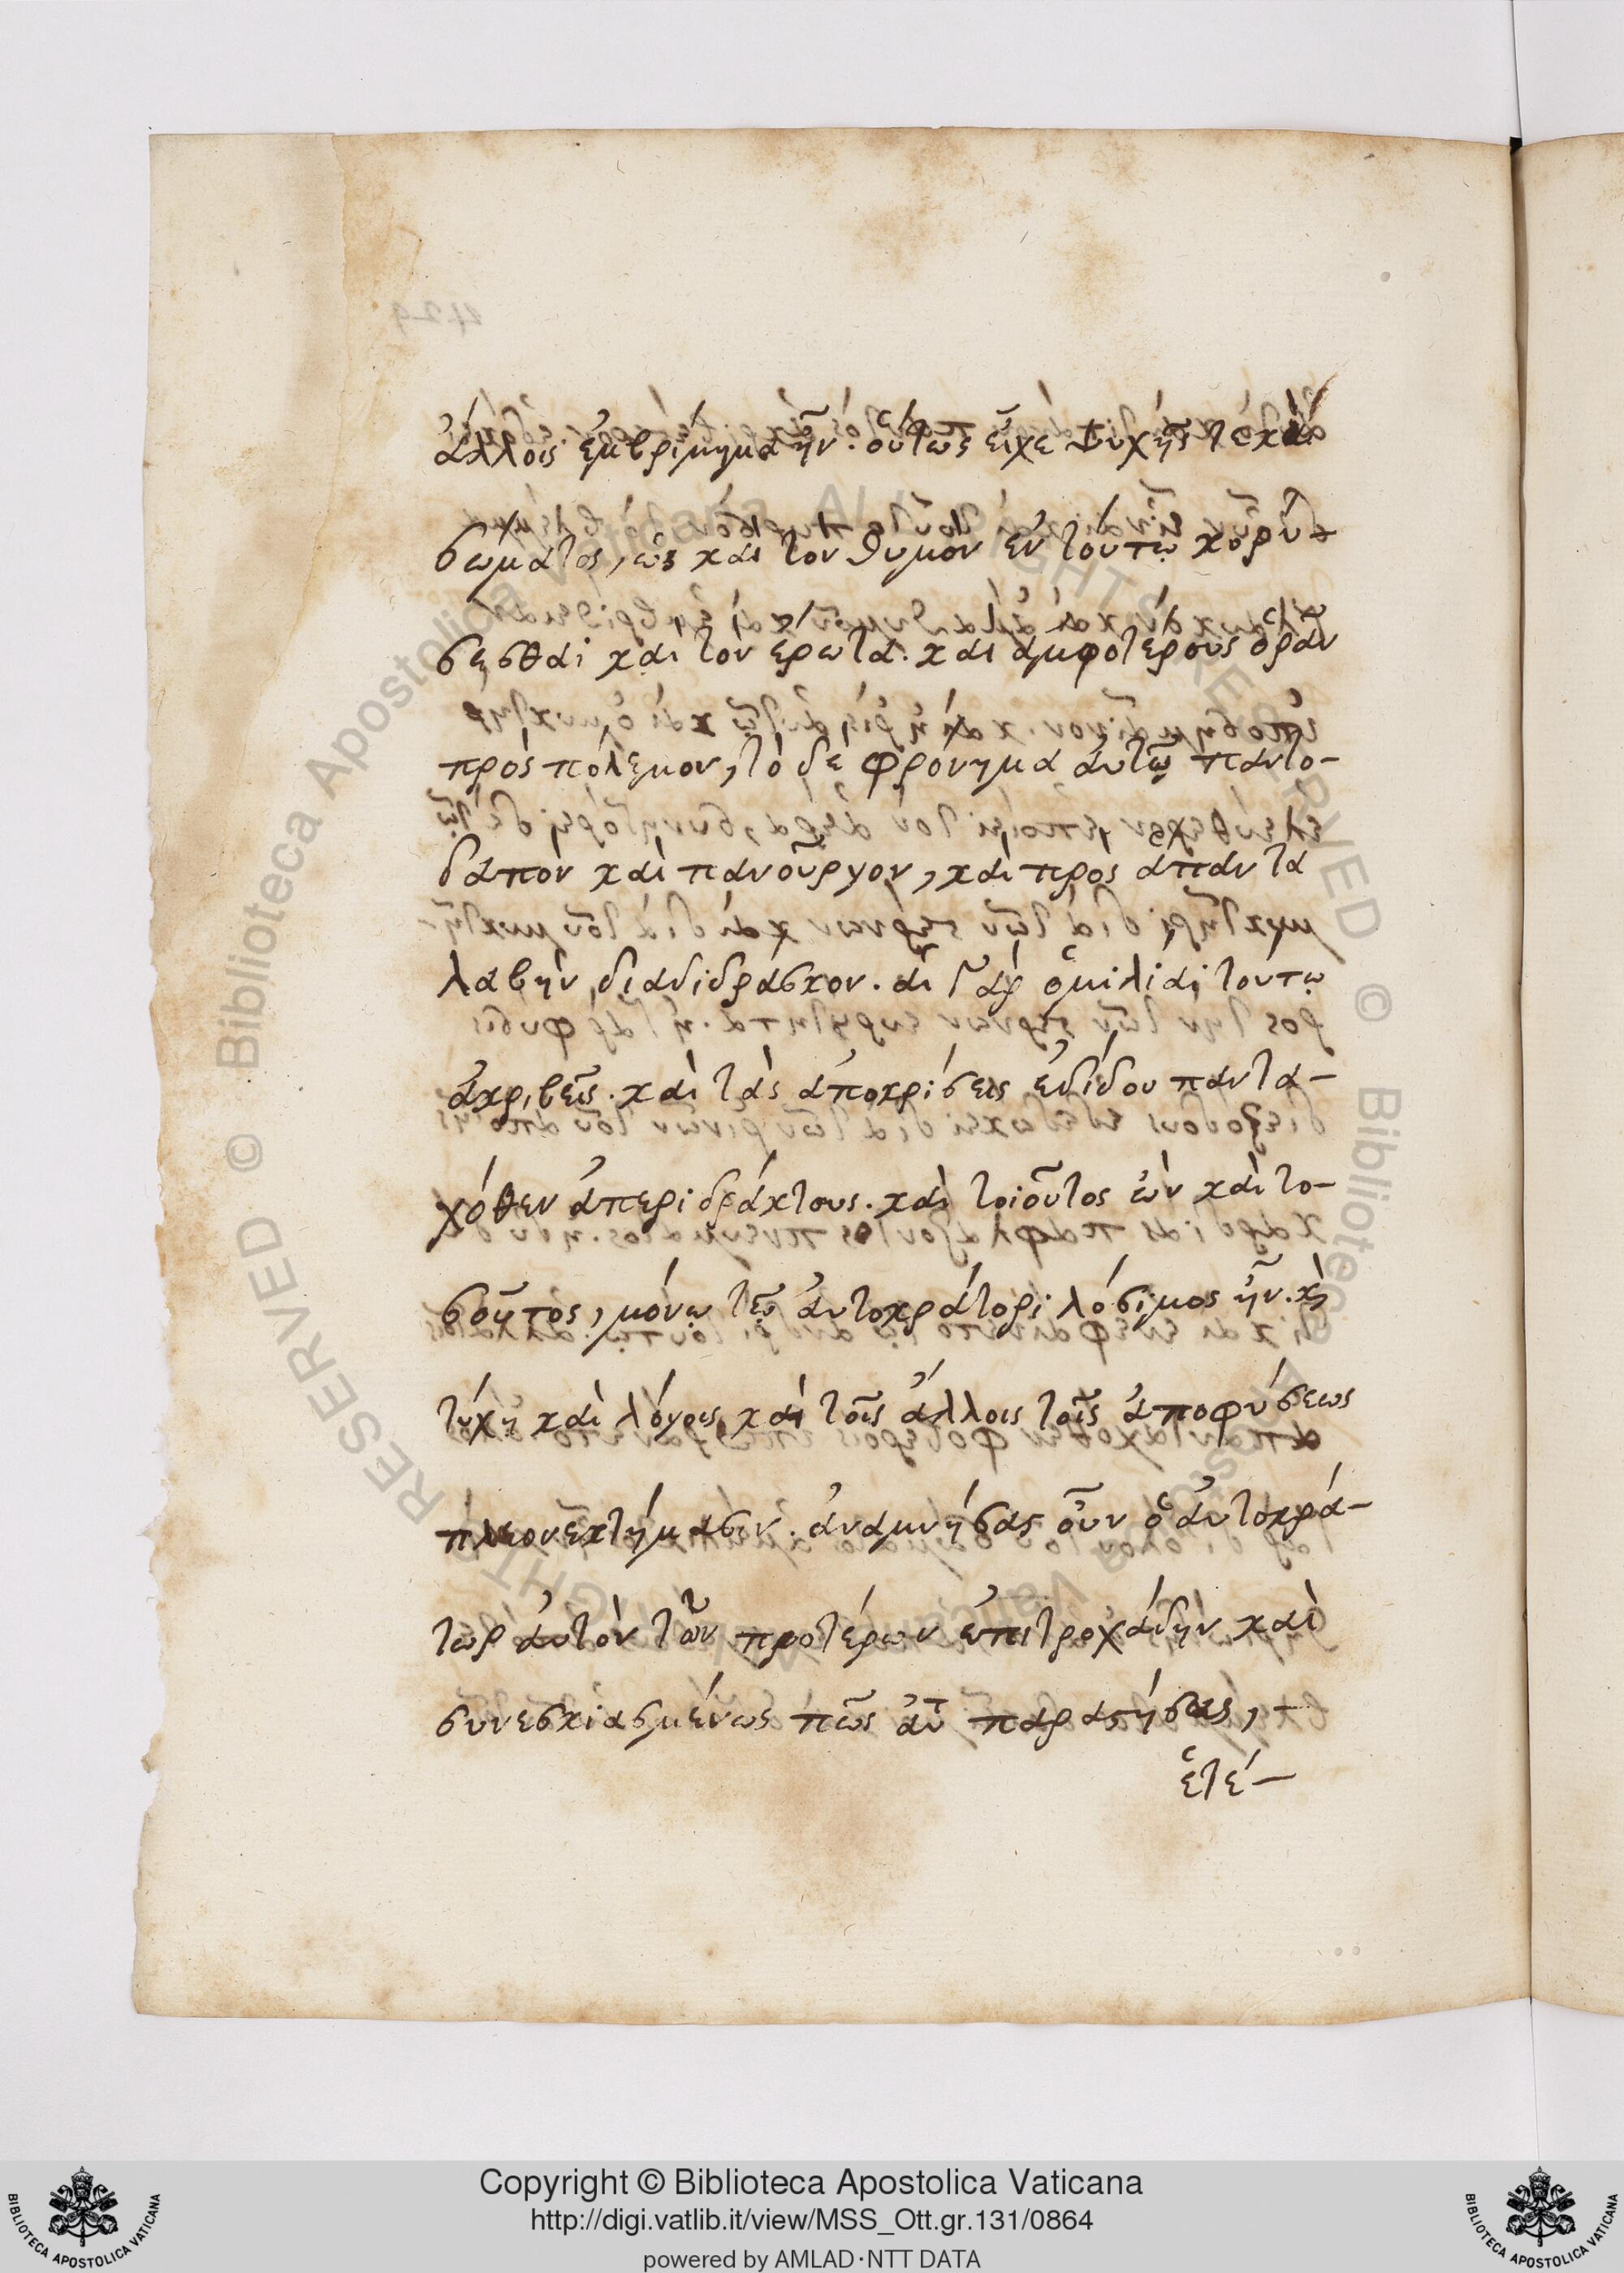 ἄλλοις ἐμβρίμημα ἦν. οὕτως εἶχε ψυχῆς τε καὶ
σώματος, ὡς καὶ τὸν θυμὸν ἐν τούτῳ κορύσ-
σεσθαι καὶ τὸν ἔρωτα. καὶ ἀμφοτέρους ὁρᾶν
πρὸς πόλεμον, τὸ δὲ φρόνημα αὐτῷ παντο-
δαπὸν καὶ πανοῦργον, καὶ πρὸς ἅπαντα
λαβὴν διαδιδράσκον. αἱ γὰρ ὁμιλίαι τούτῳ
ἀκριβεῖς. καὶ τὰς ἀποκρίσεις ἐδίδου παντα-
χόθεν ἀπεριδράκτους. καὶ τοιοῦτος ὢν καὶ το-
σοῦτος, μόνῳ τῷ αὐτοκράτορι λόσιμος ἦν. κỳ
τύχῃ καὶ λόγοις καὶ τοῖς ἄλλοις τοῖς ἀποφύσεως
πλεονεκτήμασιν. ἀναμνήσας οὖν ὁ αὐτοκρά-
τωρ αὐτὸν τῶν προτέρων ἐπιτροχάδην καὶ
συνεσκιασμένως πῶς αὖ παραστήσας,
ἑτέ-
Copyright © Biblioteca Apostolica Vaticana
http://digi.vatlib.it/view/MSS_Ott.gr.131/0864
powered by AMLAD·NTT DATA
BIBLIOTECA APOSTOLICA VATICANA
BIBLIOTECA APOSTOLICA VATICANA